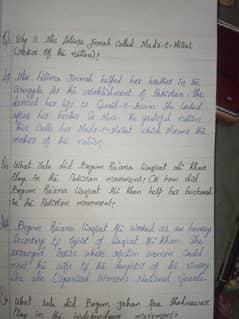 Q: Why is Miss Fatima Jinnah called Madr-e-Millat
(Mother of the nation)?
Miss Fatima Jinnah helped her brother in the
struggle for the establishment of Pakistan. She
devoted her life to Quaid-e-Azam. She looked
after her brother in The grateful nation
calls her Madr-e-Millat which means the
mother of the nation.
What role did Begum Ra'ana Liaquat Ali Khan
play in the Pakistan movement? OR how did
Begum Ra'ana Liaquat Ali Khan help her husband
in the Pakistan movement?
Begum Ra'ana Liaquat Ali worked as an honorary
Secretary to of Liaquat Ali Khan. She
arranged where Muslim women could
meet the wife of the of the viceroy.
She also Organized Women's National Guards.
What role did Begum Jahan Ara Shahnawaz
Play in the independence movement?